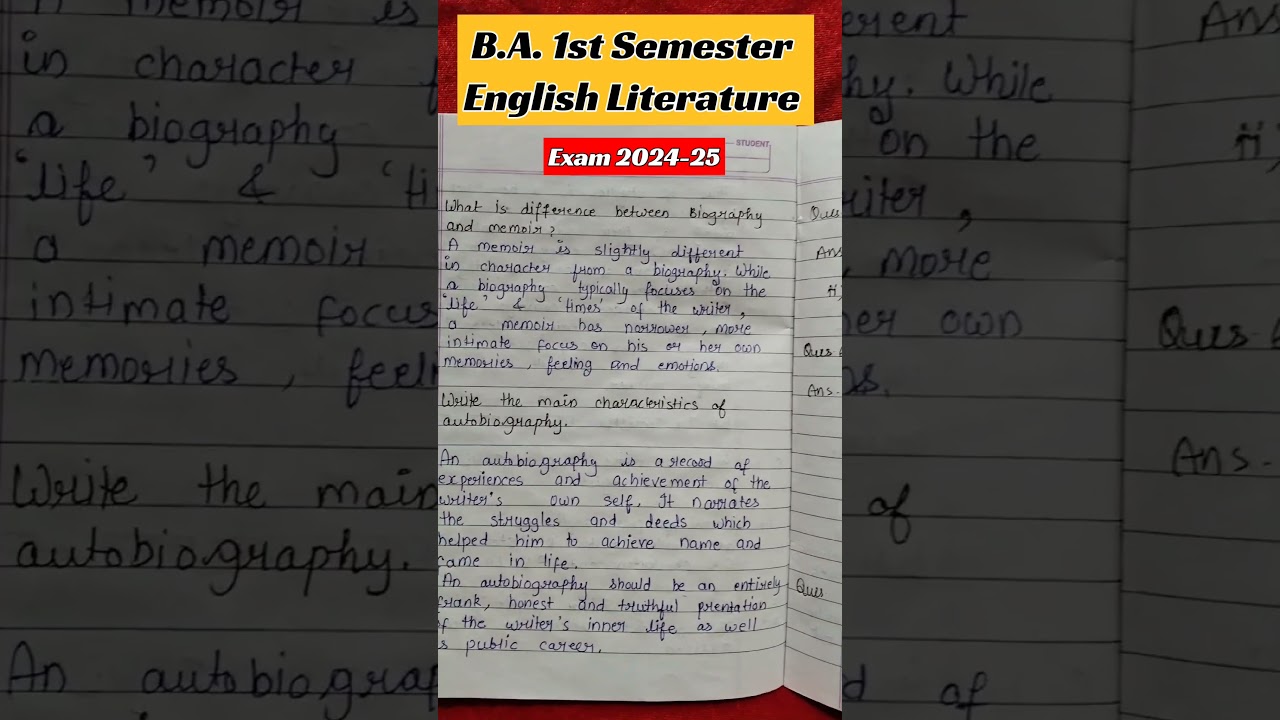 B.A. 1st Semester
English Literature
Exam 2024-25
STUDENT
What is difference between Biography
and memoir?
A memoir is slightly different
in character from a biography. While
a biography typically focuses on the
'life' & 'times' of the writer,
a memoir has narrower, more
intimate focus on his or her own
memories, feeling and emotions.
Write the main characteristics of
autobiography.
An autobiography is a record of
experiences and achievement of the
writer's own self. It narrates
the struggles and deeds which
helped him to achieve name and
came in life.
An autobiography should be an entirely
frank, honest and truthful prentation
of the writer's inner life as well
s public career.
Ques
Ans
ii)
Ques
Ans.
Ques